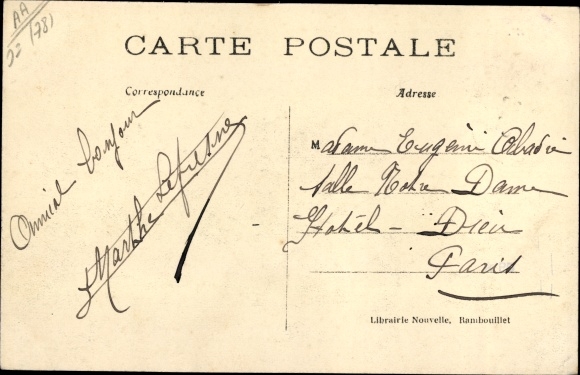 AA
(78)
CARTE POSTALE
Correspondance
Adresse
Amical bonjour
Marthe
Madame Eugénie Abadie
Salle Notre Dame
Hotel-Dieu
Paris
Librairie Nouvelle, Rambouillet